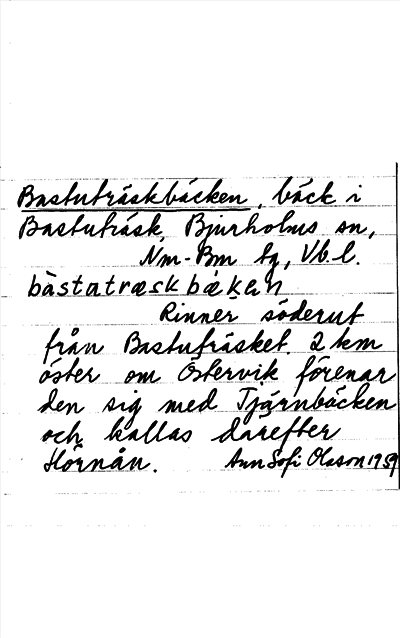 Bastuträskbäcken, bäck i
Bastuträsk, Bjurholms sn,
Nm-Bm tg, Vb.l.
bàstatræskbæ̀kan
Rinner söderut
från Bastuträsket. 2 km
öster om Östervik förenar
den sig med Tjärnbäcken
och kallas därefter
Hörnån. Ann Sofi Olason 1959